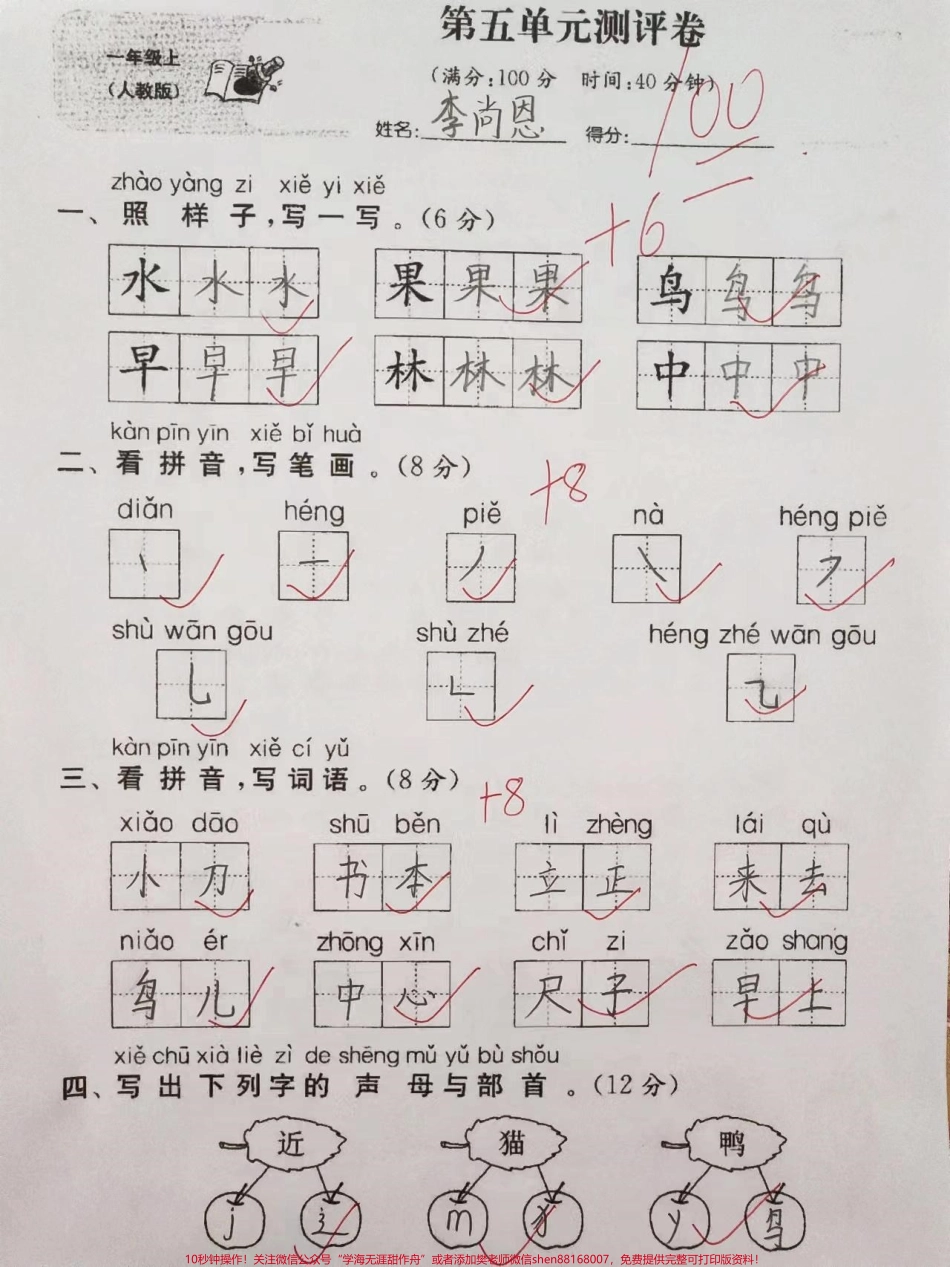 第五单元测评卷
一年级上
(人教版)
(满分:100分 时间:40分钟)
姓名: 李尚恩 得分: 100
zhào yàng zi xiě yi xiě
一、照样子,写一写。(6分) +6
水 水 水 果 果 果 鸟 鸟 鸟
早 早 早 林 林 林 中 中 中
kàn pīn yīn xiě bǐ huà
二、看拼音,写笔画。(8分) +8
diǎn héng piě nà héng piě
丶 一 丿 ㇏ ㇇
shù wān gōu shù zhé héng zhé wān gōu
乚 ㇗ ㇈
kàn pīn yīn xiě cí yǔ
三、看拼音,写词语。(8分) +8
xiǎo dāo shū běn lì zhèng lái qù
小刀 书本 立正 来去
niǎo ér zhōng xīn chǐ zi zǎo shang
鸟儿 中心 尺子 早上
xiě chū xià liè zì de shēng mǔ yǔ bù shǒu
四、写出下列字的声母与部首。(12分)
近 猫 鸭
j 辶 m 犭 y 鸟
10秒钟操作!关注微信公众号“学海无涯甜作舟”或者添加樊老师微信shen88168007,免费提供完整可打印版资料!